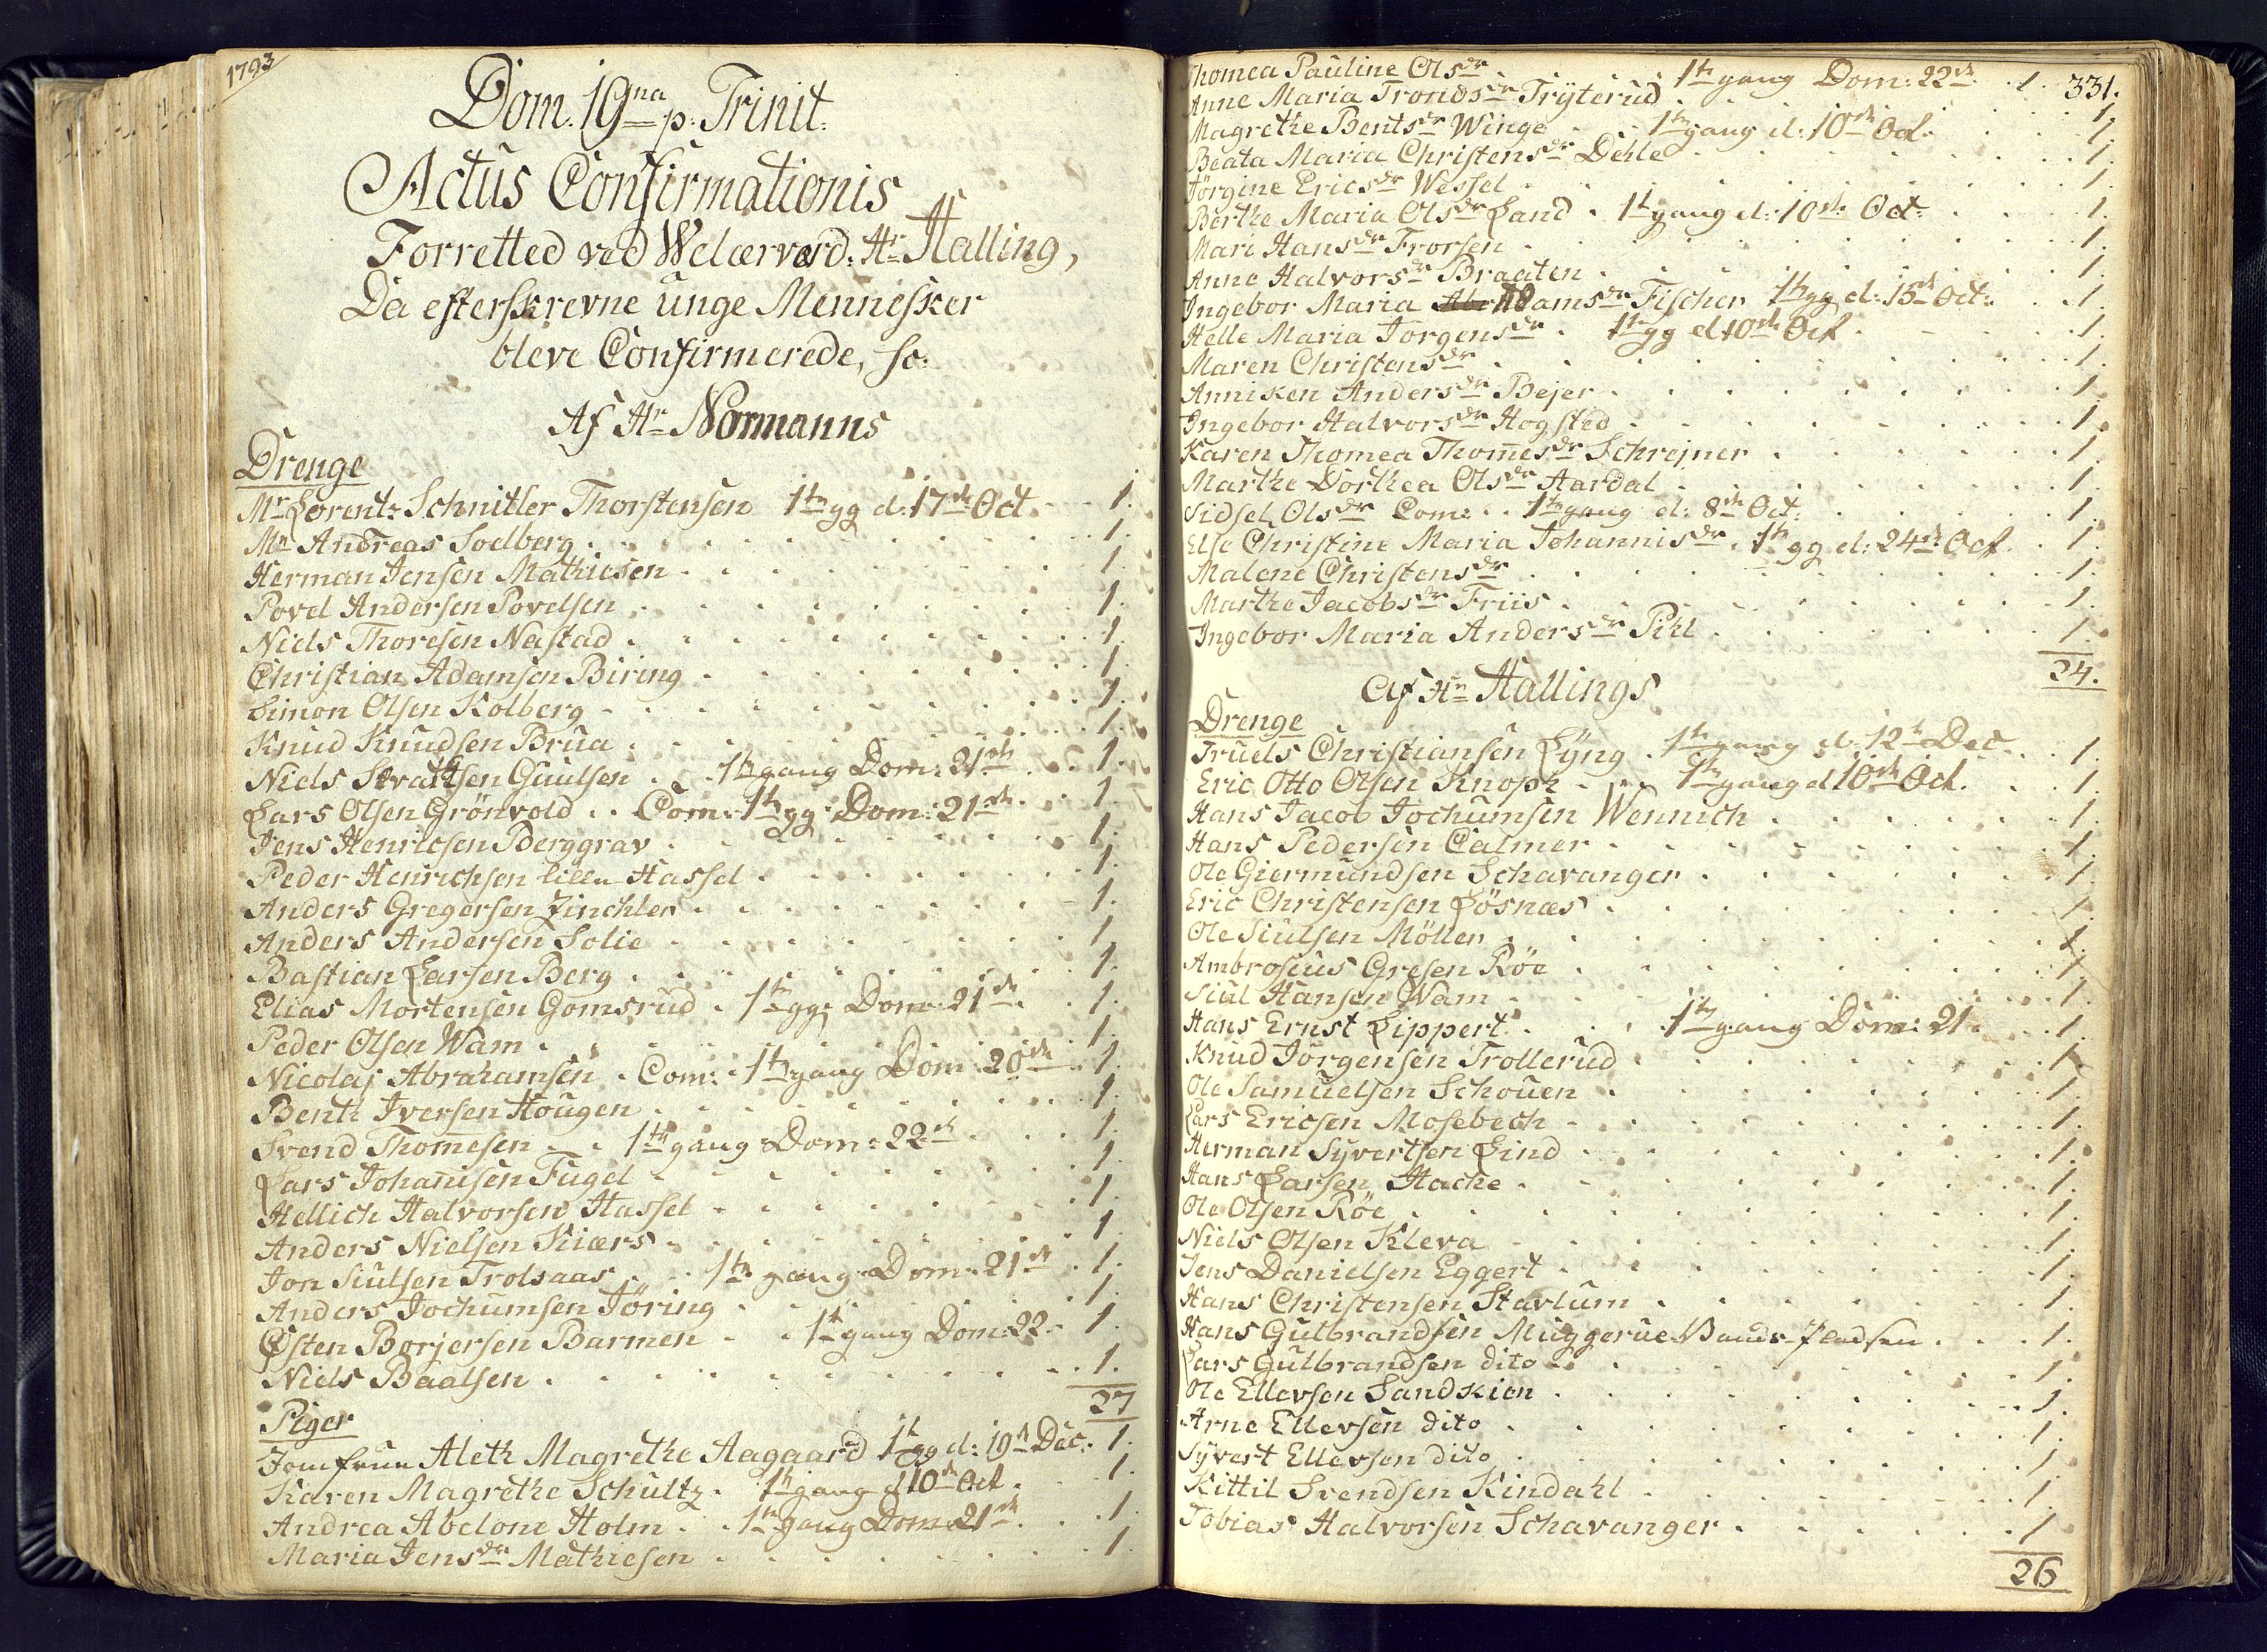 1793
Dom. 19na p. Trinit.
Actus Confirmationis
Forretted ved Welærværd: Hr Halling,
Da efterskrevne unge Mennisker
bleve Confirmerede, sc:
Af Hr Normanns
Drenge
Mr Lorentz Schnitler Thorstensen 1te gg d: 17de Oct. 1.
Mr Andreas Soelberg 1.
Herman Jensen Mathiesen 1.
Povel Andersen Povelsen 1.
Niels Thoresen Nastad 1.
Christian Adamsen Biring 1.
Simon Olsen Kolberg 1.
Knud Knudsen Brua 1.
Niels Guulsen 1te gang Dom: 21de 1.
Lars Olsen Grönvold Com: 1te gg: Dom: 21de 1.
Jens Henricsen Berggrav 1.
Peder Henrichsen lille Hassel 1.
Anders Gregersen Zinchler 1.
Anders Andersen Solie 1.
Bastian Larsen Berg 1.
Elias Mortensen Gomsrud 1te gg: Dom: 21de 1.
Peder Olsen Wam 1.
Nicolaj Abrahamsen Com: 1te gang Dom: 20de 1.
Benth Iversen Hougen 1.
Svend Thomesen 1te gang Dom: 22de 1.
Lars Johannisen Fugel 1.
Hellich Halvorsen Hassel 1.
Anders Nielsen Kiærs 1.
Jon Siulsen Trolsaas 1te gang Dom: 21de 1.
Anders Jochumsen Jöring 1.
Østen Borjersen Barmen 1te gang Dom: 22 1.
Niels Baalsen 1.
27
Piger
Jomfrue Aleth Magrethe Aagaard 1te gg d: 19de Dec: 1.
Karen Magrethe Schultz 1te gang d 10de Oct. 1.
Andrea Abelone Holm 1te gang Dom 21de 1.
Maria Jensdr Mathiesen 1.
331.
Thomea Pauline Olsdr 1te gang Dom: 22de 1.
Anne Maria Trondsdr Trÿterud 1.
Magrethe Bentsdr Winge 1te gang d: 10de Oct. 1.
Beata Maria Christensdr Dehle 1.
Jörgine Ericsdr Wessel 1.
Berthe Maria Olsdr Land 1te gang d: 10de Oct: 1.
Mari Hansdr Frorsen 1.
Anne Halvorsdr Braaten 1.
Ingebor Maria Adamsdr Fischer 1te gg d: 15de Oct: 1.
Helle Maria Jorgensdr 1te gg d 10de Oct 1.
Maren Christensdr 1.
Anniken Andersdr Bejer 1.
Ingebor Halvorsdr Hogsted 1.
Karen Thomea Thomesdr Schrejner 1.
Marthe Dorthea Olsdr Aardal 1.
Sidsel Olsdr Com: 1te gang d: 8de Oct: 1.
Else Christine Maria Johannisdr 1te gg d: 24de Oct 1.
Malene Christensdr 1.
Marthe Jacobsdr Friis 1.
Ingebor Maria Andersdr Pihl 1.
24.
Af Hr Hallings
Drenge
Truels Christiansen Lÿng 1te gang d: 12te Dec. 1.
Eric Otto Olsen Knoph 1te gang d 10de Oct. 1.
Hans Jacob Jochumsen Wennich 1.
Hans Pedersen Calmer 1.
Ole Giermundsen Schavanger 1.
Eric Christensen Løsnæs 1.
Ole Siulsen Möller 1.
Ambrosius Gresen Röe 1.
Siul Hansen Wam 1.
Hans Ernst Lippert 1te gang Dom: 21 1.
Knud Jörgensen Trollerud 1.
Ole Samuelsen Schouen 1.
Lars Ericsen Mosebech 1.
Herman Syvertsen Lind 1.
Hans Larsen Hache 1.
Ole Olsen Röe 1.
Niels Olsen Kleva 1.
Jens Danielsen Eggert 1.
Hans Christensen Stavlum 1.
Hans Gulbrandsen Muggerue 1.
Lars Gulbrandsen dito 1.
Ole Ellevsen Sandskien 1.
Arne Ellevsen dito 1.
Syvert Ellevsen dito 1.
Kittil Svendsen Kindahl 1.
Tobias Halvorsen Schavanger 1.
26